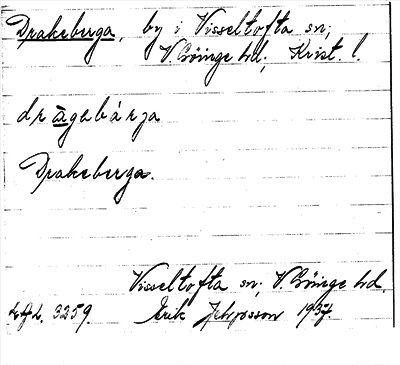 Drakeberga, by i Visseltofta sn;
V. Göinge hd; Krist. l.
dràgabárja
Drakeberga.
Visseltofta sn; V. Göinge hd.
3259. Erik 1937.